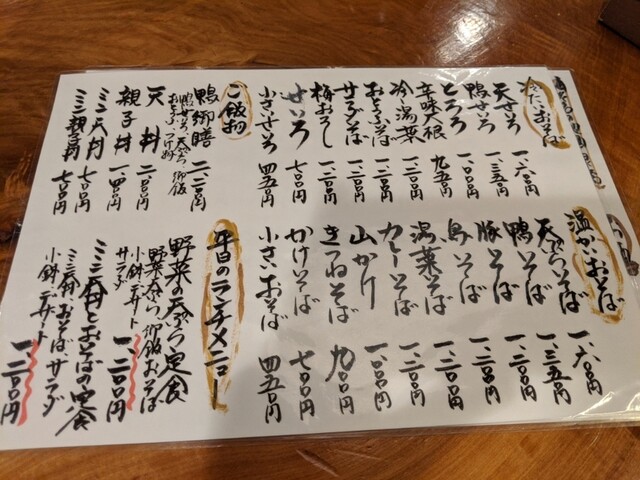 冷たいおそば
天せいろ 一、六〇〇円
鴨せいろ 一、三五〇円
とろろ 一、一〇〇円
辛味大根 九五〇円
冷し湯葉 一、二〇〇円
おとうふそば 一、二〇〇円
サラダそば 一、二〇〇円
梅おろし 一、二〇〇円
せいろ 七〇〇円
小さいせいろ 四五〇円
ご飯物
鴨御膳 二、二〇〇円
鴨せいろ、天ぷら、御飯
おとうふ、つけ物
天丼 二、〇〇〇円
親子丼 一、四〇〇円
ミニ天丼 七〇〇円
ミニ親子丼 七〇〇円
温かいおそば
天ぷらそば 一、六〇〇円
鴨そば 一、三五〇円
豚そば 一、二〇〇円
鳥そば 一、二〇〇円
湯葉そば 一、二〇〇円
カレーそば 一、二〇〇円
山かけ 一、一〇〇円
きつねそば 九〇〇円
かけそば 七〇〇円
小さいおそば 四五〇円
平日のランチメニュー
野菜の天ぷら定食
野菜天ぷら、御飯、おそば
小鉢、デザート
サラダ 一、二〇〇円
ミニ天丼とおそばの定食
ミニ天丼、おそば、サラダ
小鉢、デザート 一、二〇〇円